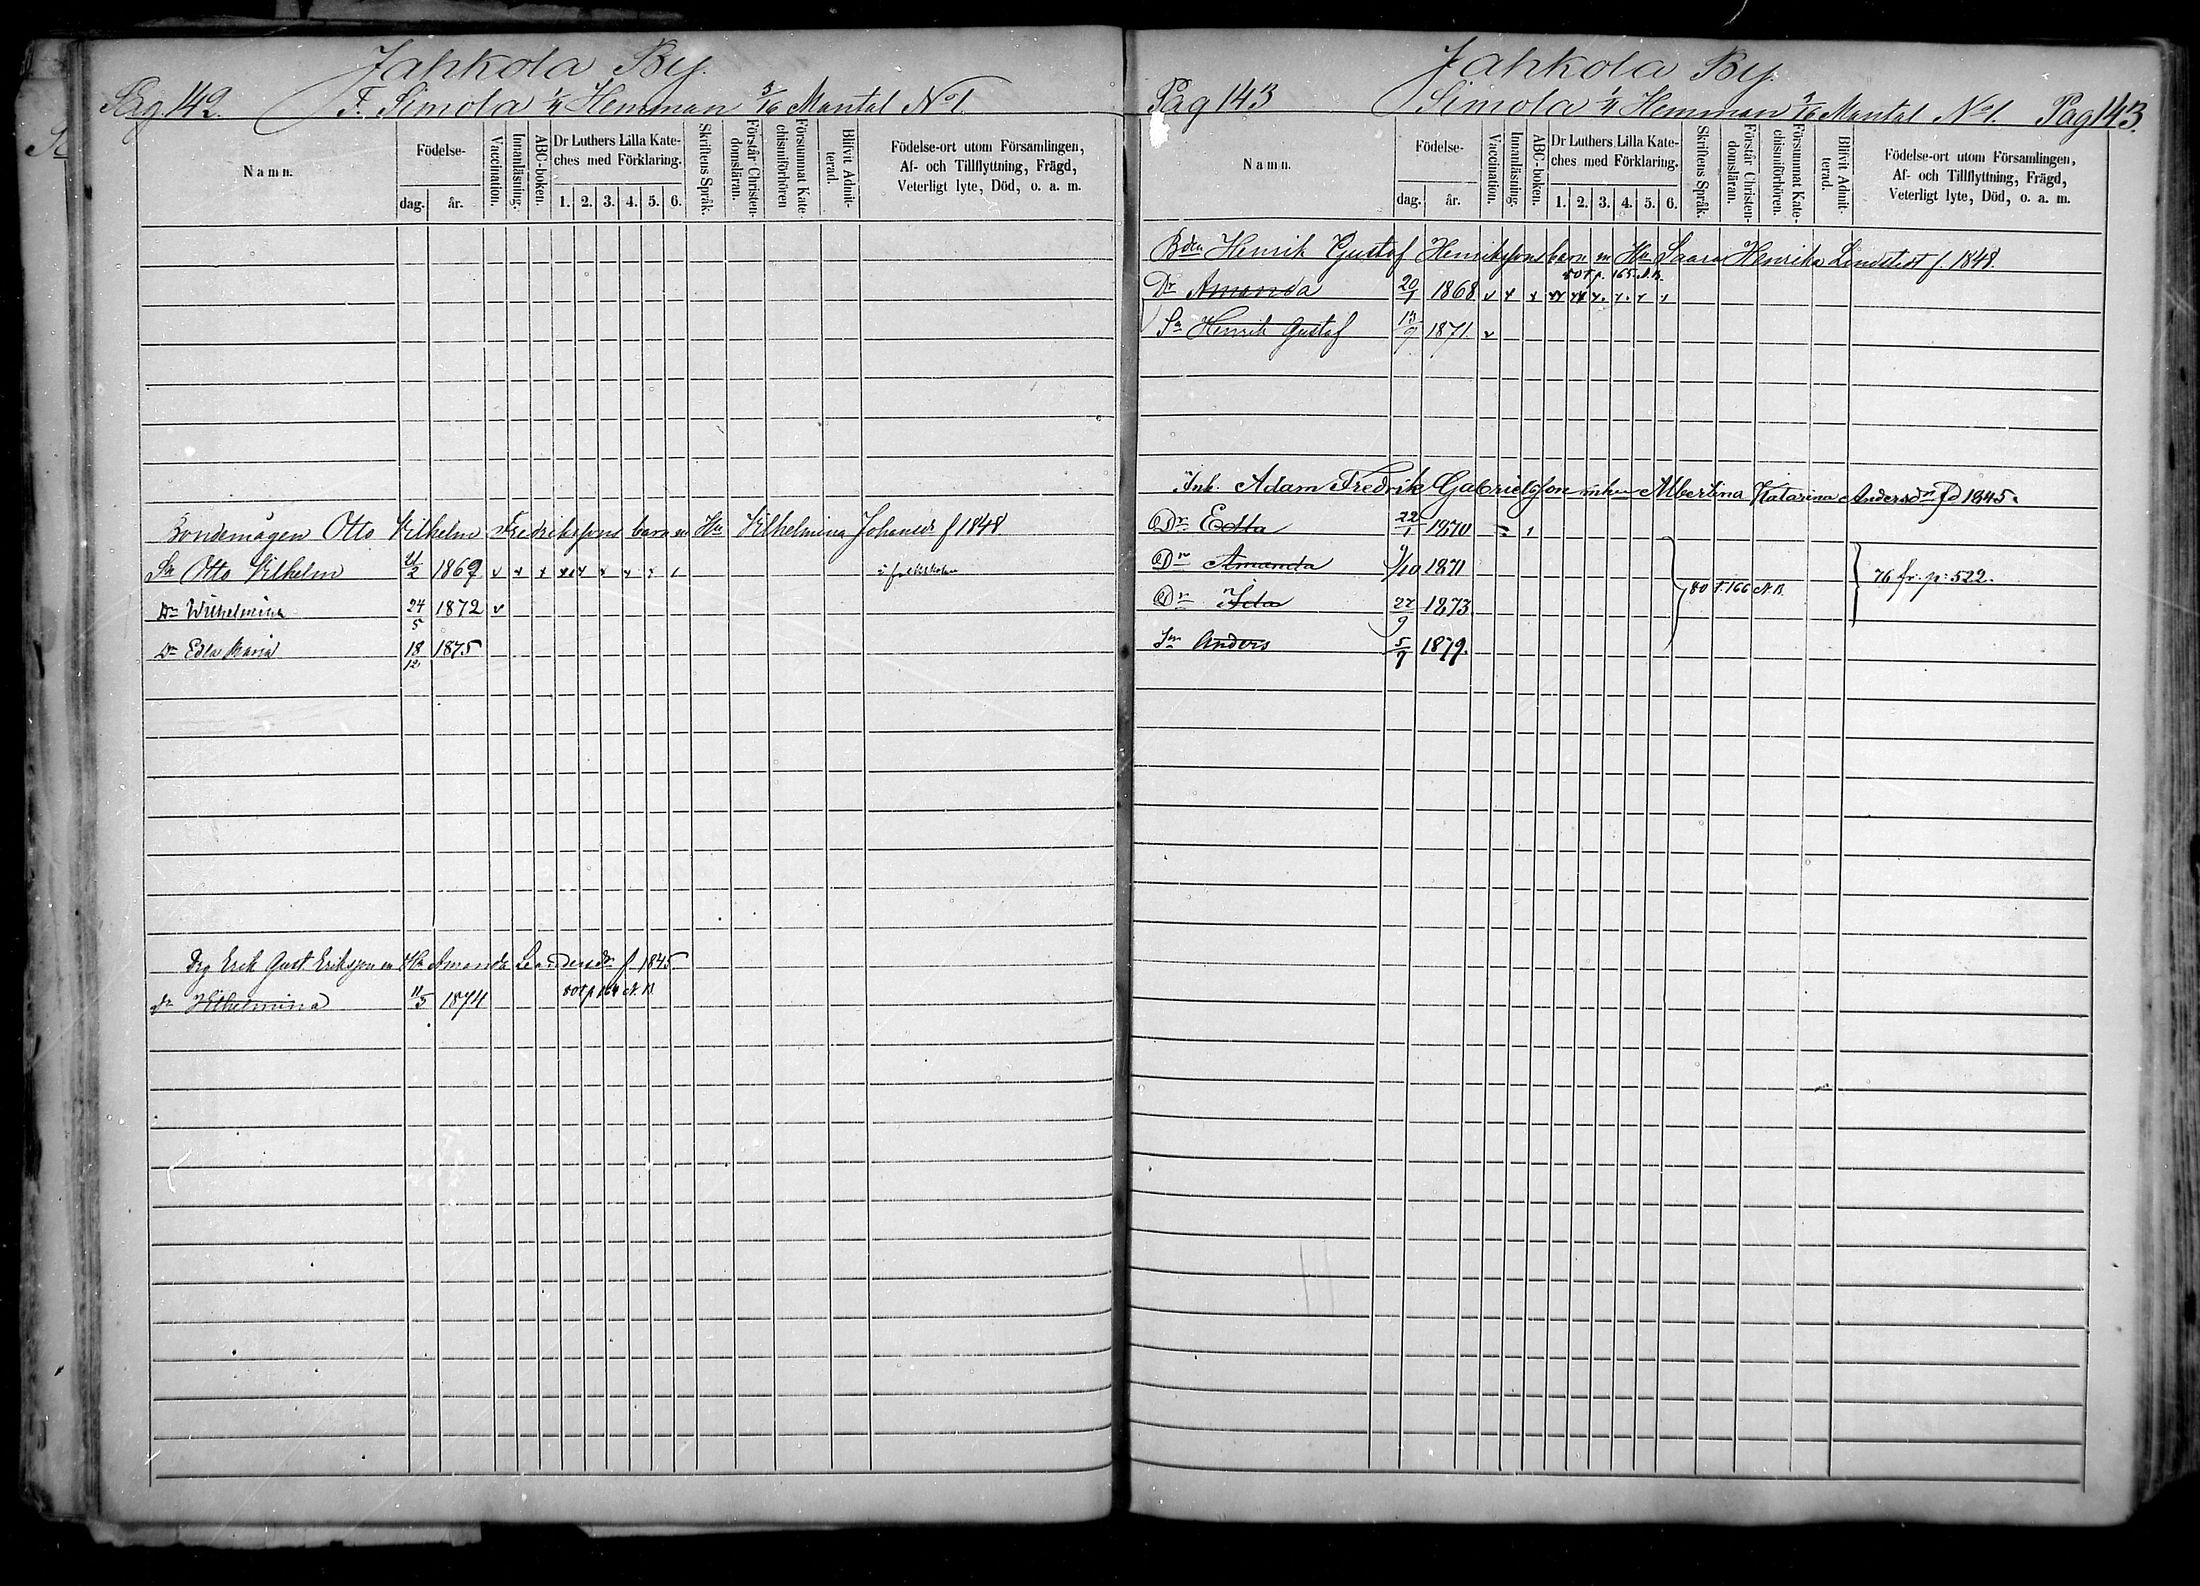 Jahkola By.
Pag. 142. F. Simola 1/4 Hemman 3/16 Mantal No 1.
Namn.
Födelse-
dag. år.
Vaccination.
Innanläsning.
ABC-boken.
Dr Luthers Lilla Kate-
ches med Förklaring.
1. 2. 3. 4. 5. 6.
Skriftens Språk.
Förstår Christen-
domsläran.
Försummat Kate-
chismiförhören
Blifvit Admit-
terad.
Födelse-ort utom Församlingen,
Af- och Tillflyttning, Frägd,
Veterligt lyte, Död, o. a. m.
Bondemågen Otto Vilhelm Fredrikssons barn m Hu Vilhelmina Johansdr f 1848.
Sn Otto Vilhelm 1869 i folkskolan
Dr Wilhelmina 24/5 1872 v
Dr Edla Maria 18/12 1875
Drg Erik Gust Eriksson m Hu Amanda Leandersdr f 1845.
80 t p 164 N.B.
Dr Vilhelmina 11/5 1874
Jahkola By.
Pag 143 Simola 1/4 Hemman 3/16 Mantal No 1. Pag 143.
Namn.
Födelse-
dag. år.
Vaccination.
Innanläsning.
ABC-boken.
Dr Luthers Lilla Kate-
ches med Förklaring.
1. 2. 3. 4. 5. 6.
Skriftens Språk.
Förstår Christen-
domsläran.
Försummat Kate-
chismiförhören.
Blifvit Admit-
terad.
Födelse-ort utom Församlingen,
Af- och Tillflyttning, Frägd,
Veterligt lyte, Död, o. a. m.
Bden Henrik Gustaf Henrikssons barn m Hu Saara Henrika Lindstedt f. 1848.
80 t p. 165 N.B.
Dr Amanda 20/1 1868
Sn Henrik Gustaf 13/9 1871. v
Inh. Adam Fredrik Gabrielsson m hu Albertina Katarina Andersdr fd 1845.
Dr Edla 22/1 1870
Dr Amanda 9/10 1871
76 fr. p. 522.
80 t. 166 N.B.
Dr Ida 22/9 1873
Sn Anders 5/9 1879.